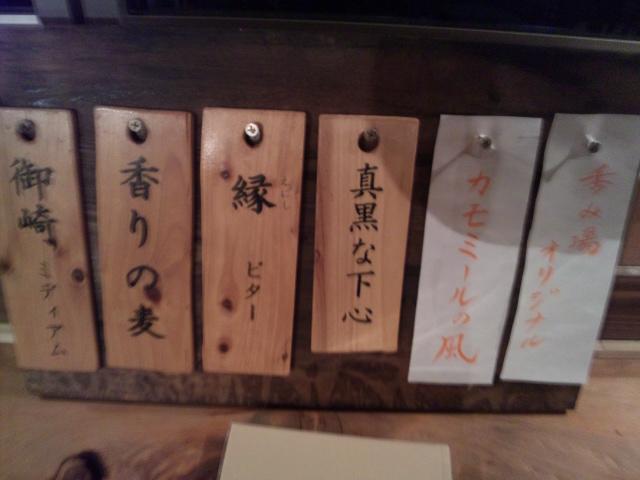 御崎 ミディアム
香りの麦
縁 ビター
真黒な下心
カモミールの風
オリジナル